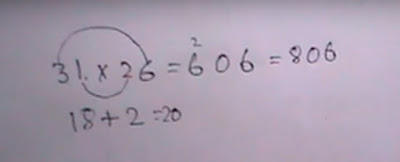 31 × 26 = ²606 = 806
18+2=20